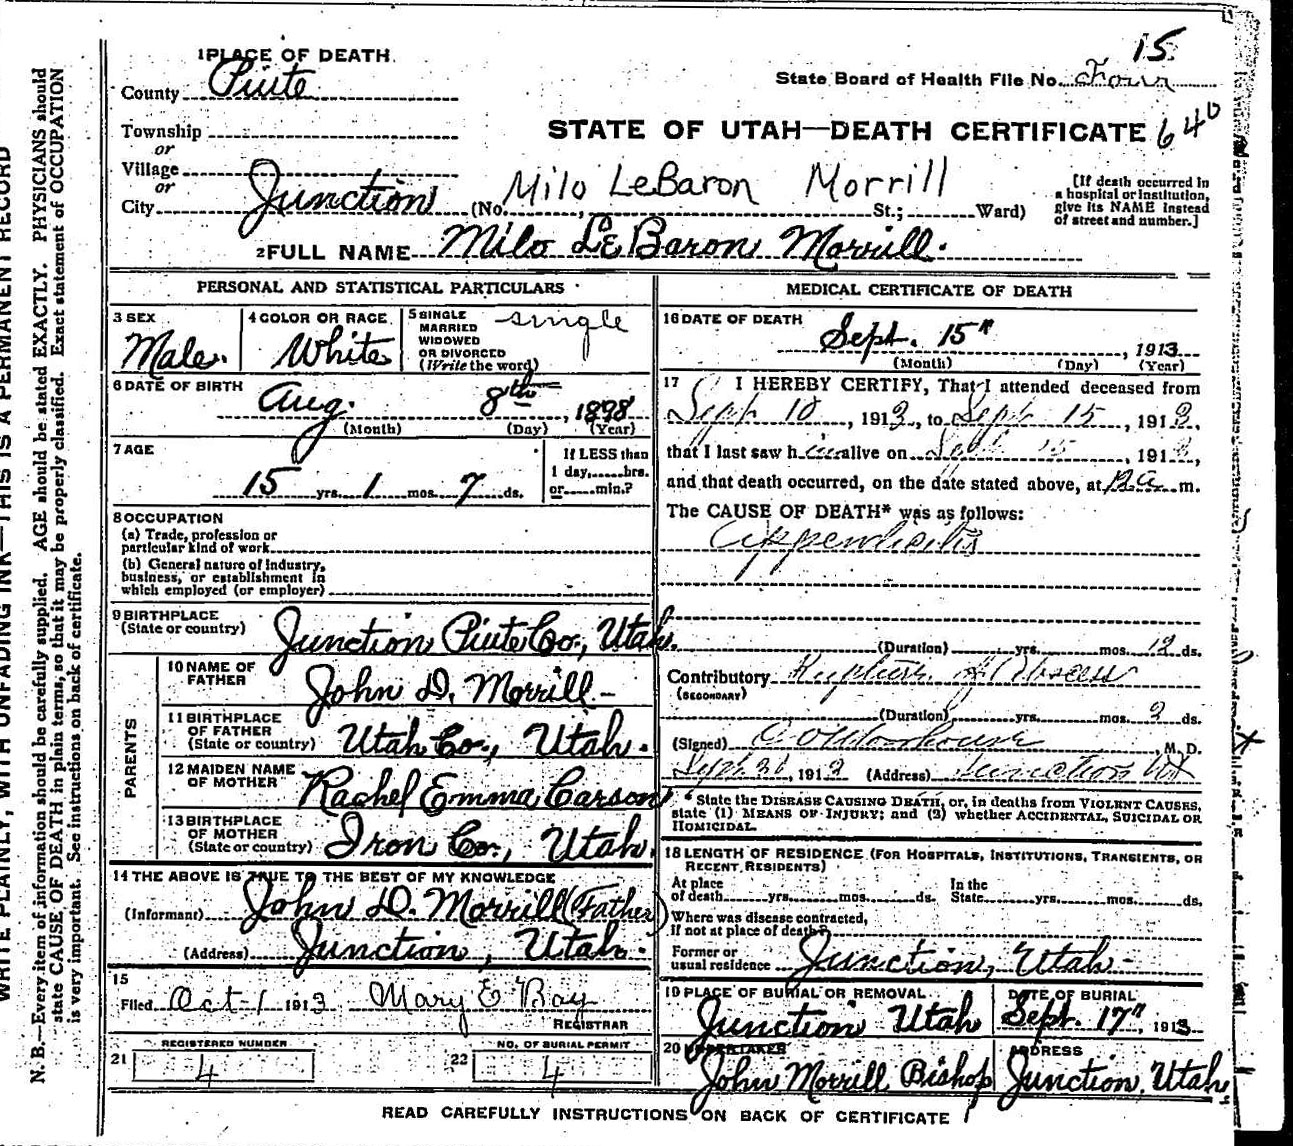 15
1 PLACE OF DEATH
County Piute
State Board of Health File No. Four
Township
or
Village
or
City Junction
STATE OF UTAH—DEATH CERTIFICATE 640
(No. Milo LeBaron Morrill St.; Ward)
[If death occurred in
a hospital or institution,
give its NAME instead
of street and number.]
2 FULL NAME Milo LeBaron Morrill.
PERSONAL AND STATISTICAL PARTICULARS
3 SEX
Male.
4 COLOR OR RACE
White
5 SINGLE
MARRIED
WIDOWED
OR DIVORCED
(Write the word)
single
6 DATE OF BIRTH
Aug. 8th, 1898
(Month) (Day) (Year)
7 AGE
15 yrs. 1 mos. 7 ds.
If LESS than
1 day, hrs.
or min.?
8 OCCUPATION
(a) Trade, profession or
particular kind of work
(b) General nature of industry,
business, or establishment in
which employed (or employer)
9 BIRTHPLACE
(State or country)
Junction Piute Co., Utah.
PARENTS
10 NAME OF
FATHER
John D. Morrill
11 BIRTHPLACE
OF FATHER
(State or country)
Utah Co., Utah.
12 MAIDEN NAME
OF MOTHER
Rachel Emma Carson
13 BIRTHPLACE
OF MOTHER
(State or country)
Iron Co., Utah.
14 THE ABOVE IS TRUE TO THE BEST OF MY KNOWLEDGE
(Informant) John D. Morrill (Father)
(Address) Junction, Utah.
15
Filed Oct-1 1913 Mary E Bay
REGISTRAR
21 REGISTERED NUMBER
4
22 NO. OF BURIAL PERMIT
4
MEDICAL CERTIFICATE OF DEATH
16 DATE OF DEATH
Sept. 15", 1913
(Month) (Day) (Year)
17 I HEREBY CERTIFY, That I attended deceased from
Sept 10, 1913, to Sept 15, 1913,
that I last saw him alive on Sept 15, 1913,
and that death occurred, on the date stated above, at m.
The CAUSE OF DEATH* was as follows:
Appendisitis
(Duration) yrs. mos. 12 ds.
Contributory Rupture of Abscess
(SECONDARY)
(Duration) yrs. mos. 2 ds.
(Signed) M. D.
Sept 26, 1913 (Address) Junction Ut
* State the DISEASE CAUSING DEATH, or, in deaths from VIOLENT CAUSES,
state (1) MEANS OF INJURY; and (2) whether ACCIDENTAL, SUICIDAL OR
HOMICIDAL.
18 LENGTH OF RESIDENCE (FOR HOSPITALS, INSTITUTIONS, TRANSIENTS, OR
RECENT RESIDENTS)
At place
of death yrs. mos. ds.
In the
State yrs. mos. ds.
Where was disease contracted,
if not at place of death?
Former or
usual residence Junction, Utah
19 PLACE OF BURIAL OR REMOVAL
Junction Utah
DATE OF BURIAL
Sept. 17", 1913
20 UNDERTAKER
John Morrill Bishop
ADDRESS
Junction, Utah,
READ CAREFULLY INSTRUCTIONS ON BACK OF CERTIFICATE
WRITE PLAINLY, WITH UNFADING INK—THIS IS A PERMANENT RECORD
N. B.—Every item of information should be carefully supplied. AGE should be stated EXACTLY. PHYSICIANS should
state CAUSE OF DEATH in plain terms, so that it may be properly classified. Exact statement of OCCUPATION
is very important. See instructions on back of certificate.